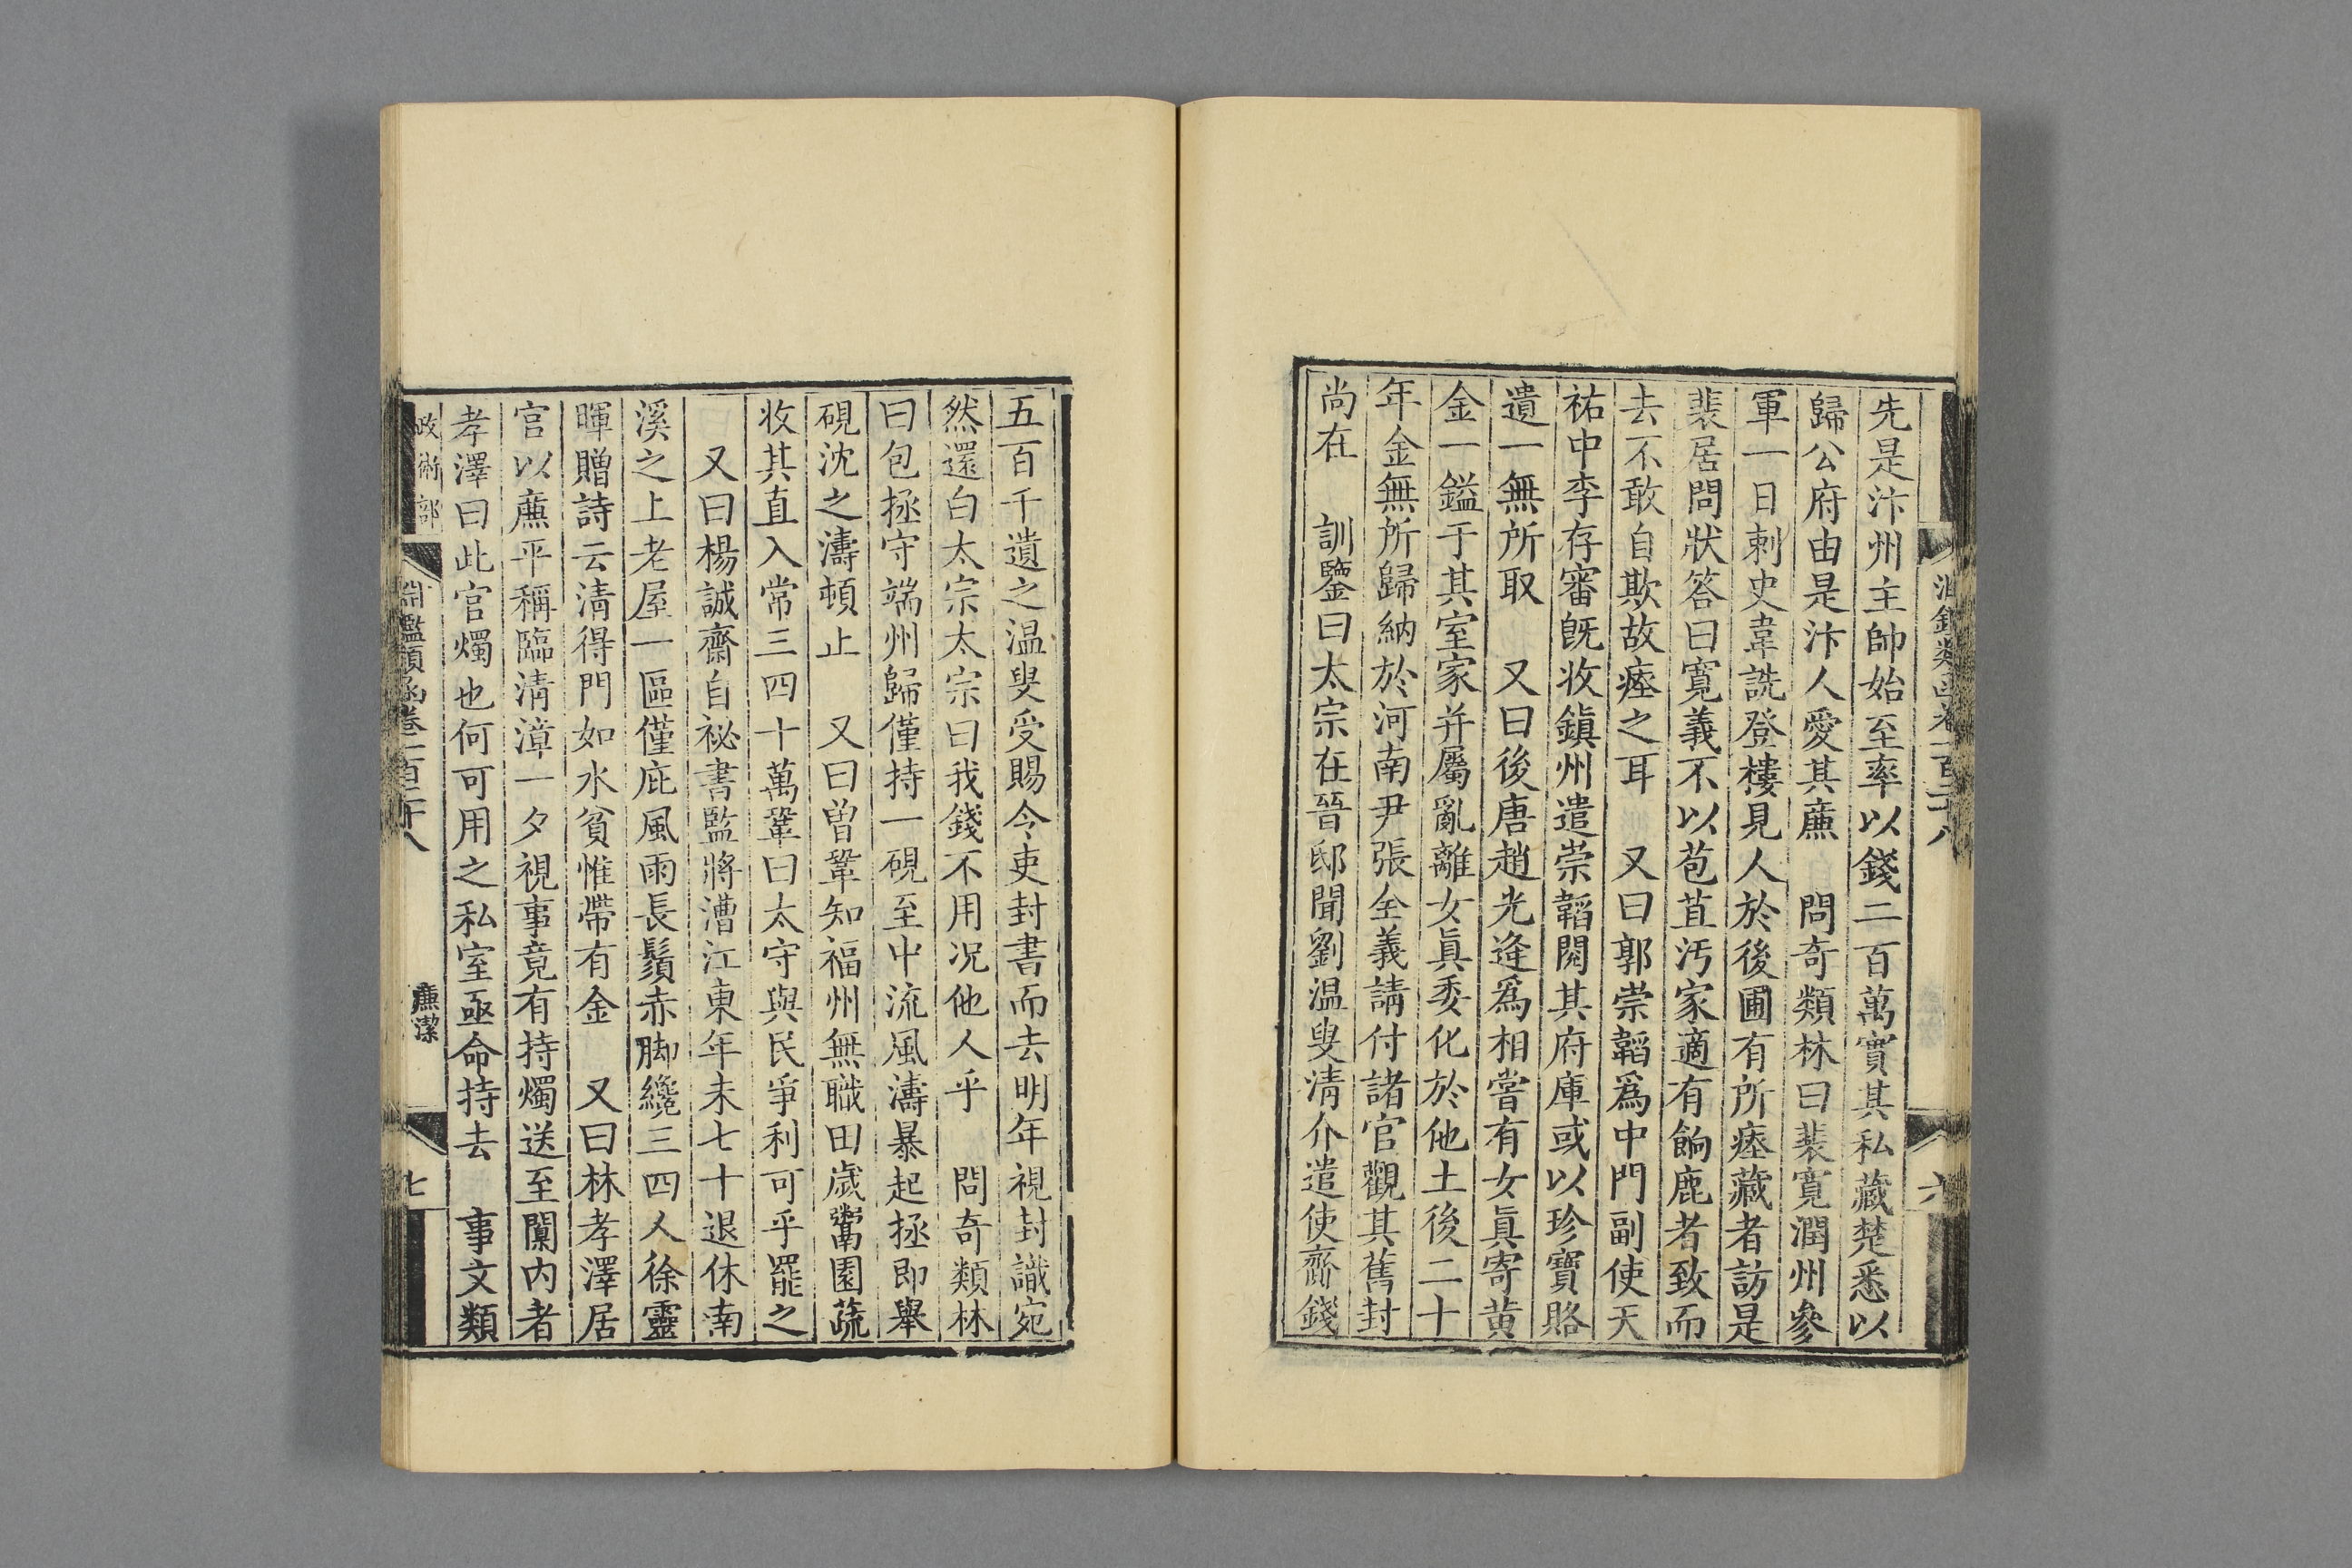 先是汴州主帥始至率以錢二百萬實其私藏楚悉以
歸公府由是汴人愛其㢘　問奇類林曰裴寬潤州參
軍一日刺史韋詵登樓見人於後圃有所瘞藏者訪是
裴居問狀答曰寬義不以苞苴汚家適有餉鹿者致而
去不敢自欺故瘞之耳　又曰郭崇韜爲中門副使天
祐中李存審旣收鎭州遣崇韜閱其府庫或以珍寶賂
遺一無所取　又曰後唐趙光逢爲相嘗有女眞寄黃
金一鎰于其室家并屬亂離女眞委化於他土後二十
年金無所歸納於河南尹張全義請付諸官觀其舊封
尚在　訓鑒曰太宗在晉邸聞劉温叟淸介遣使齎錢
六
五百千遺之温叟受賜令吏封書而去明年視封識宛
然還白太宗太宗曰我錢不用况他人乎　問奇類林
曰包拯守端州歸僅持一硯至中流風濤暴起拯即舉
硯沈之濤頓止　又曰曾鞏知福州無職田歲鬻園蔬
收其直入常三四十萬鞏曰太守與民爭利可乎罷之
又曰楊誠齋自祕書監將漕江東年未七十退休南
溪之上老屋一區僅庇風雨長鬚赤脚纔三四人徐靈
暉贈詩云淸得門如水貧惟帶有金　又曰林孝澤居
官以㢘平稱臨淸漳一夕視事竟有持燭送至闑內者
孝澤曰此官燭也何可用之私室亟命持去　事文類
政術部
淵鑑類函卷一百二十八
㢘潔
七